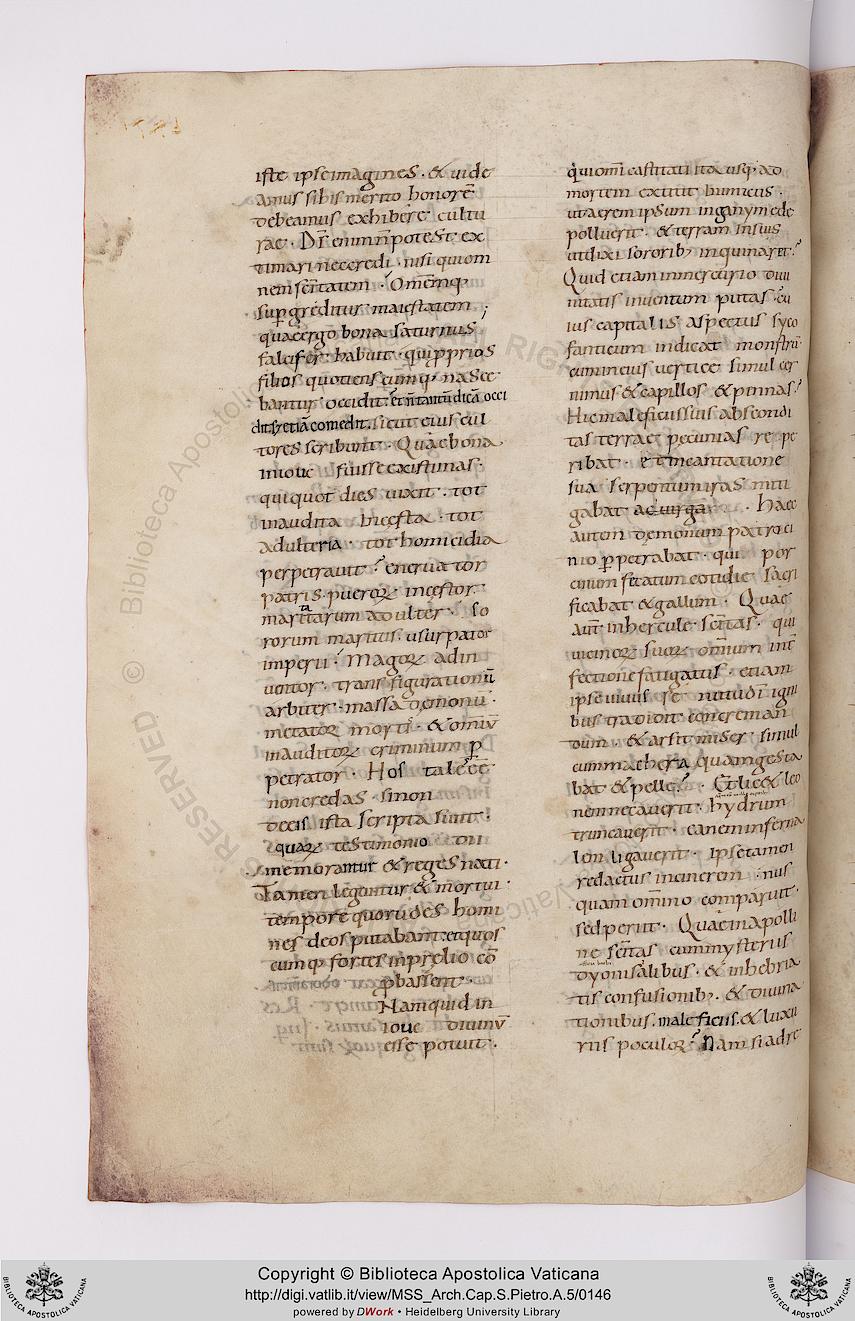 iste ipse imagines · & uide
amus si his merito honorē
debeamus exhibere cultu
rae · Dī enim n̄ potest ex
timari nec credi · nisi qui om
nem sc̄itatem · Omēmq;
sup greditur maiestatem ;
quae ergo bona saturnus
falcifer · habuit · qui pprios
filios quotiens cumq; nasce
bantur occidit · et n̄ tantū dicā occi
dit sz etiā comedit · sicut eius cul
tores scribunt · Quae bona
in ioue fuisse existimas ·
qui quot dies uixit · tot
inaudita incesta · tot
adulteria · tot homicidia
perpetrauit ? eneruator
patris · pueroꝝ incestor ·
maritarum adulter · so
rorum maritus · usurpator
imperii · Magoꝝ adin
uentor · transfigurationū
arbiter · massa demonū ·
metatoꝝ morti · & omiū
inauditoꝝ criminum ꝑ
petrator · Hos tales ēē
non credas · si non
decis ista scripta sunt ·
quaꝝ testimonio dii
memorantur & reges nati ·
Tamen leguntur & mortui ·
tempore quo rudes homi
nes deos putabant · et quos
cumq; fortes in prelio cō
ꝓbassent ·
Nam quid in
ioue diuinū
esse potuit ·
qui omī castitati ita usq; ad
mortem extitit inimicus ·
ut aerem ipsum in ganymede
polluerit · & terram in suis
ut dixi sororib; inquinaret ?
Quid etiam in mercurio diui
nitatis inuentum putas · cu
ius capitalis aspectus syco
fanticum indicat monstrū
cum in eius uertice simul cer
nimus & capillos & pinnas ?
Hic maleficus suis abscondi
tas terrae pecunias repe
ribat · et incantatione
sua serpentum iras miti
gabat ac uirga · haec
autem demonum patroci
nio ꝑpetrabat · qui por
cinum fetatum cotidie sacri
ficabat & gallum · Quae
aut in hercule sc̄itas · qui
uicinoꝝ suoꝝ omnium int
fectione fatigatus · etiam
ipse uiuus se nutu dī igni
bus tradidit concreman
dum · & arsit miser · simul
cum machera quam gesta
bat & pelle ? Et lic& leo
nem necauerit · hydrum
truncauerit · canem inferna
lem ligauerit · ipse tamen
redactus in cinerem · nus
quam omnino comparuit ·
sed periit · Quae in apolli
ne sc̄itas cum mysteriis
dyonisialibus · & inhebria
tis confusionib; · & diuina
tionibus · maleficiis · & luxu
riis poculoꝝ ? Nam si ad re
Copyright © Biblioteca Apostolica Vaticana
http://digi.vatlib.it/view/MSS_Arch.Cap.S.Pietro.A.5/0146
powered by DWork • Heidelberg University Library